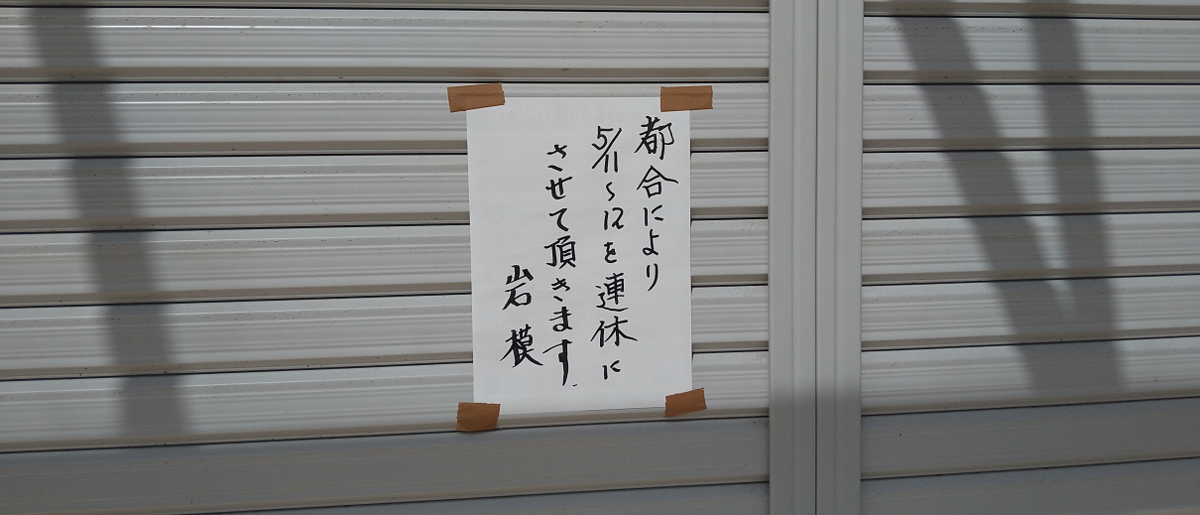 都合により
5/11~12を連休に
させて頂きます.
岩模